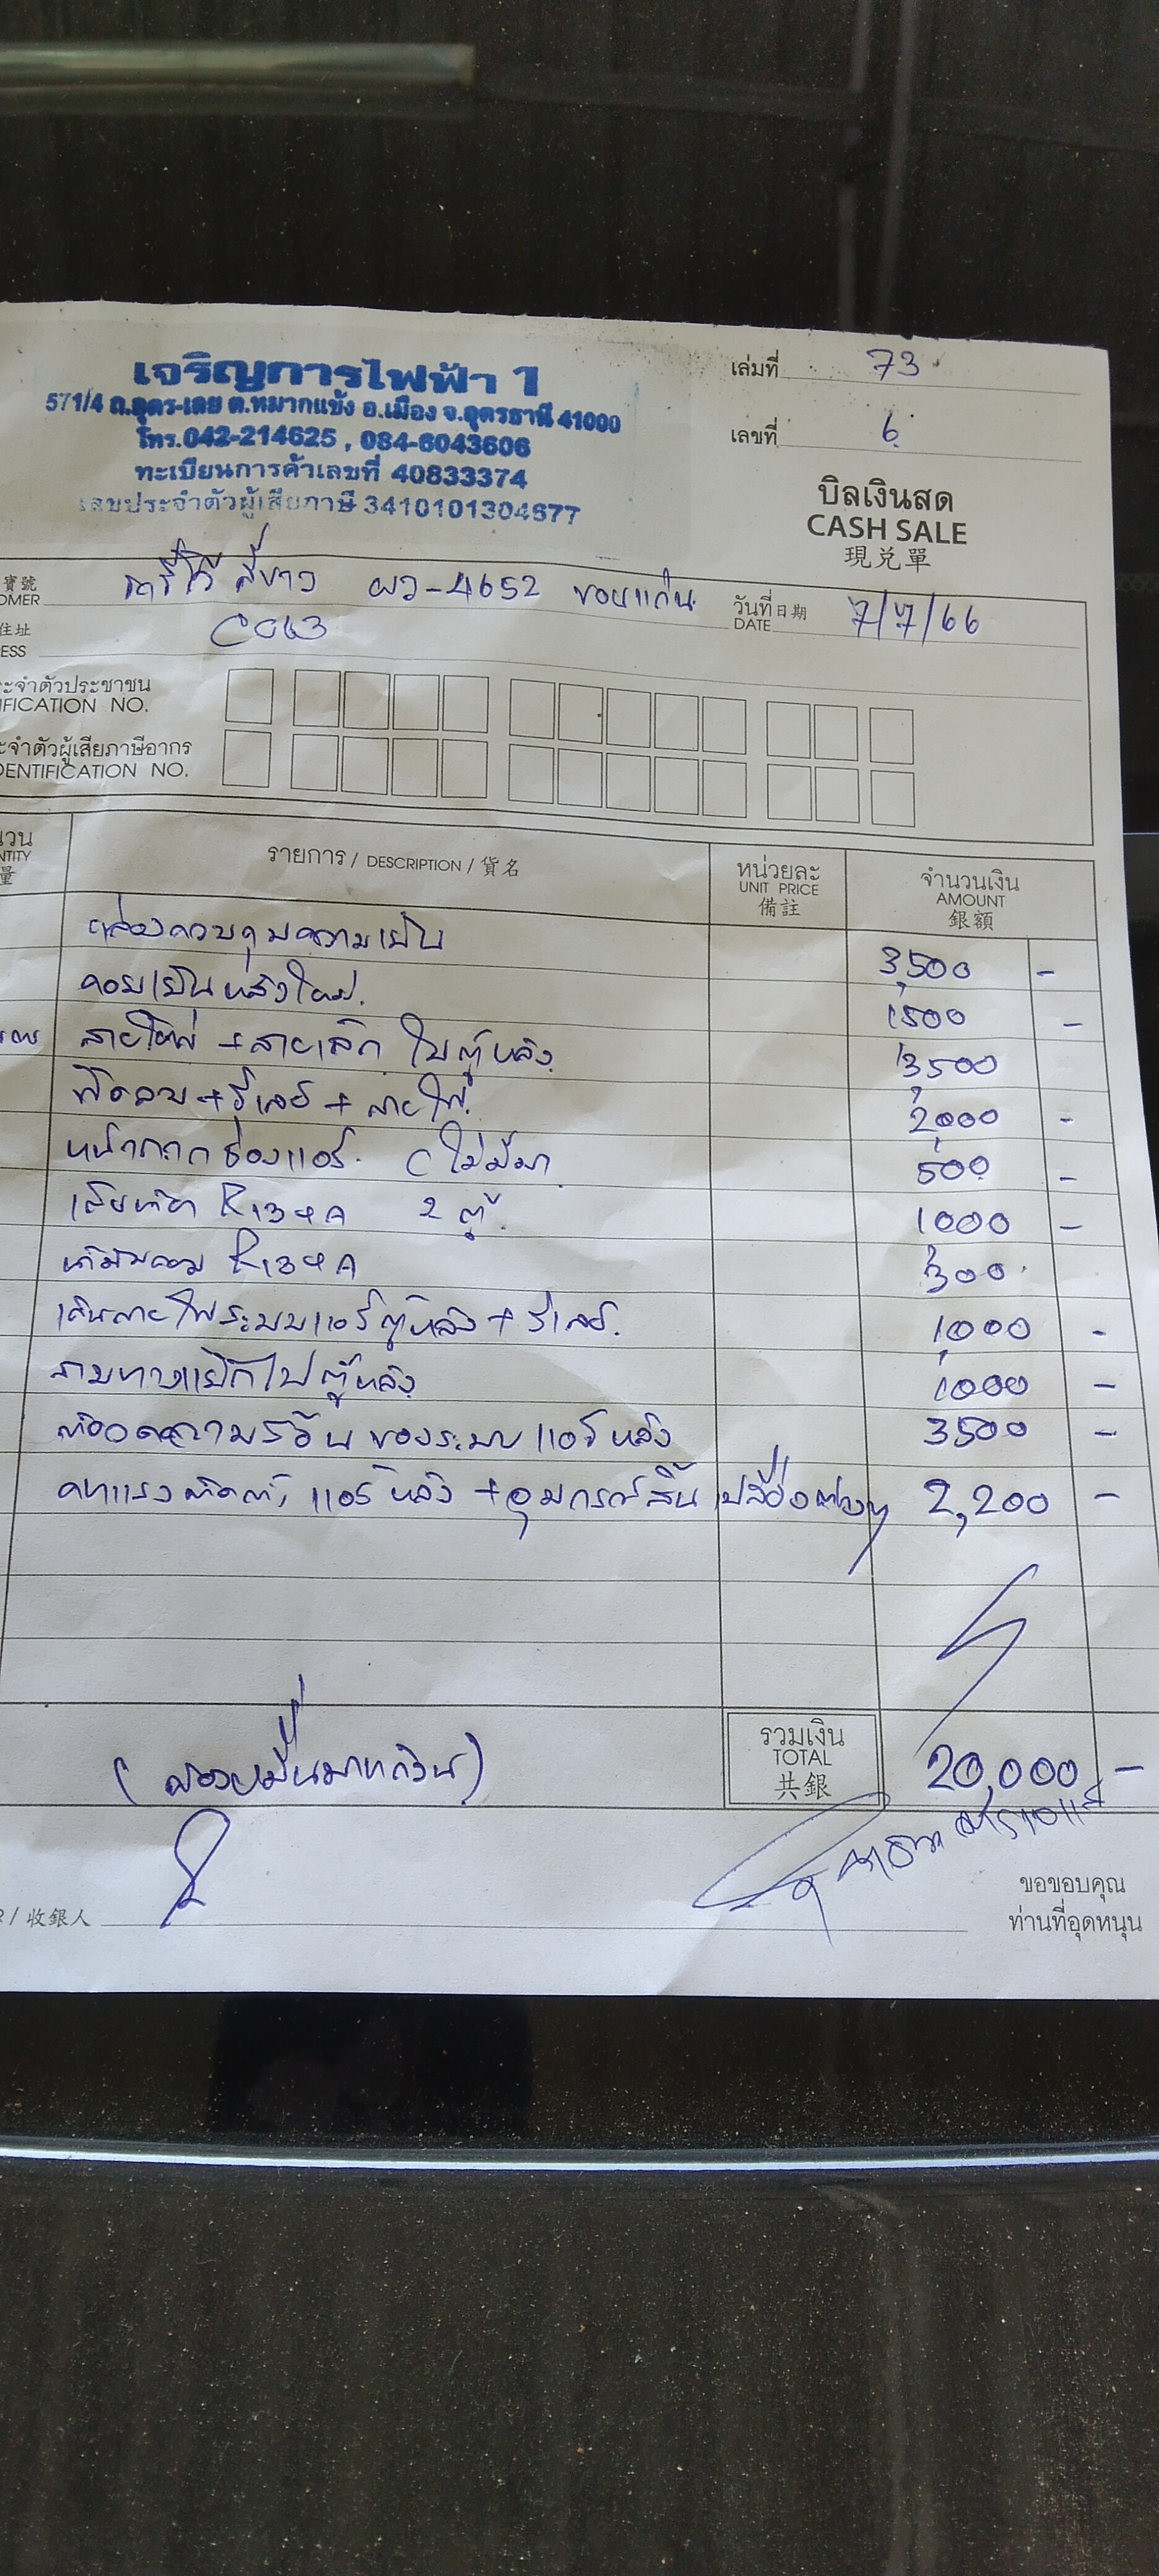 เจริญการไฟฟ้า 1
571/4 ถ.อุดร-เลย ต.หมากแข้ง อ.เมือง จ.อุดรธานี 41000
โทร.042-214625 , 084-6043606
ทะเบียนการค้าเลขที่ 40833374
เลขประจำตัวผู้เสียภาษี 3410101304677
เล่มที่ 73
เลขที่ 6
บิลเงินสด
CASH SALE
現兌單
寶號
OMER รถตู้ สีขาว ผว-4652 ขอนแก่น
วันที่ 日期
DATE 7/7/66
住址
ESS
ะจำตัวประชาชน
IFICATION NO.
ะจำตัวผู้เสียภาษีอากร
DENTIFICATION NO.
นวน
NTITY
量
รายการ / DESCRIPTION / 貨名
หน่วยละ
UNIT PRICE
備註
จำนวนเงิน
AMOUNT
銀額
กล่องควบคุมความเย็น 3,500 -
คอยเย็นหลังใหม่. 1,500 -
สายใหญ่ + สายเล็ก ไปตู้หลัง 3,500
พัดลม + รีเลย์ + สายไฟ. 2,000 -
หน้ากากช่องแอร์. (ไม่มีมา 500 -
เติมน้ำยา R134A 2 ตู้. 1000 -
น้ำมันคอม R134A 300.
เดินสายไฟระบบแอร์ตู้หลัง + รีเลย์. 1,000 -
สามทางแยกไปตู้หลัง 1000 -
ความร้อนของระบบแอร์หลัง 3500 -
ค่าแรงติดตั้งแอร์หลัง + อุปกรณ์สิ้นเปลืองต่างๆ 2,200 -
(สองหมื่นบาทถ้วน)
รวมเงิน
TOTAL
共銀
20,000 -
/ 收銀人
ขอขอบคุณ
ท่านที่อุดหนุน